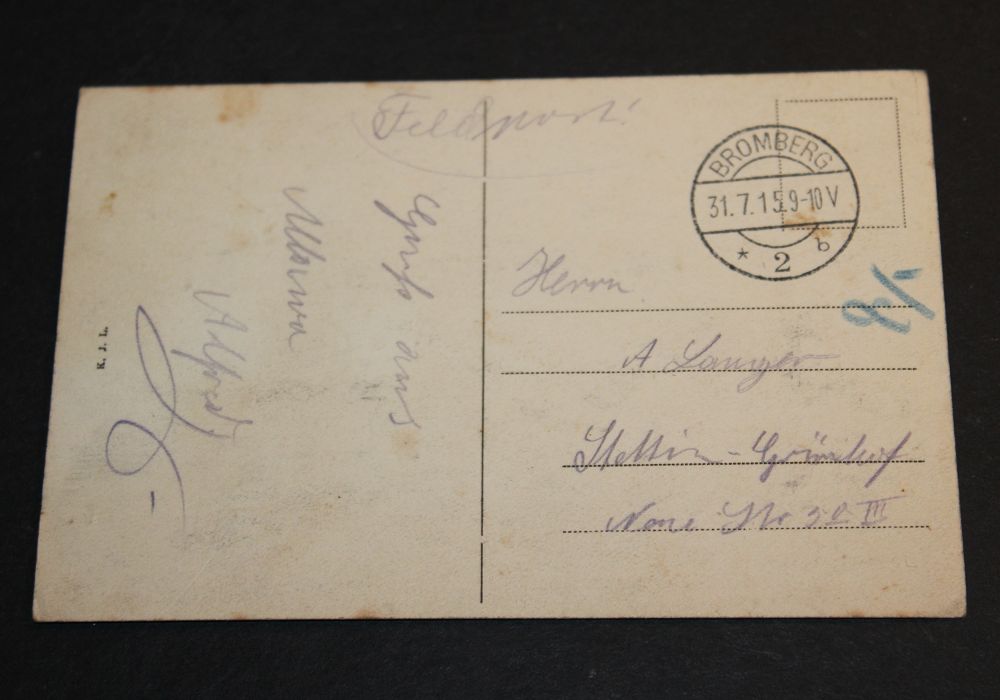 Feldpost!
BROMBERG
31.7.15.9-10V
* 2 b
Gruß aus
Mlawa
Alfred
K. J. L.
Herrn
A Langer
Stettin-Grünhof
Neue Str III